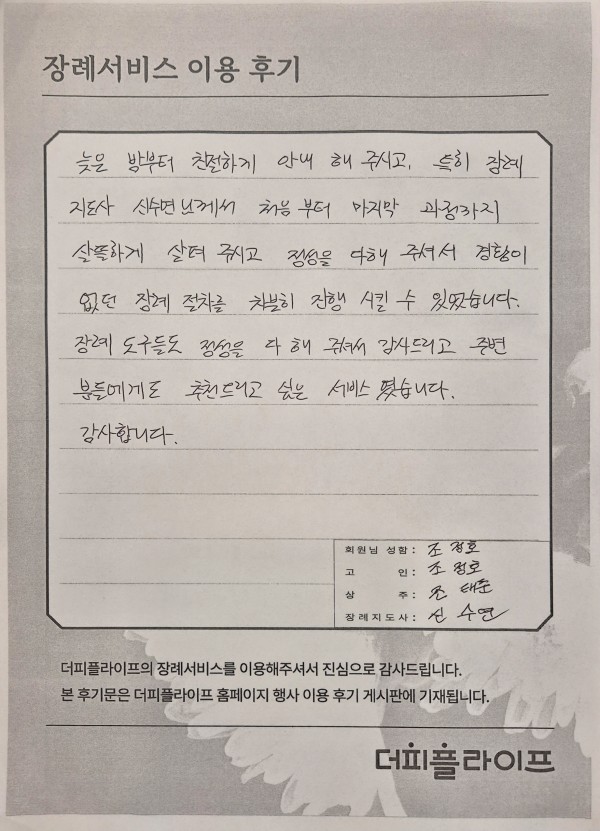 장례서비스 이용 후기
늦은 밤부터 친절하게 안내 해 주시고, 특히 장례
지도사 신수연 님께서 처음부터 마지막 과정까지
살뜰하게 살펴 주시고 정성을 다해 주셔서 경황이
없던 장례 절차를 차분히 진행 시킬 수 있었습니다.
장례 도구들도 정성을 다 해 주셔서 감사드리고 주변
분들에게도 추천드리고 싶은 서비스 였습니다.
감사합니다.
회원님 성함 : 조정호
고 인 : 조정호
상 주 : 조태준
장례지도사 : 신수연
더피플라이프의 장례서비스를 이용해주셔서 진심으로 감사드립니다.
본 후기문은 더피플라이프 홈페이지 행사 이용 후기 게시판에 기재됩니다.
더피플라이프